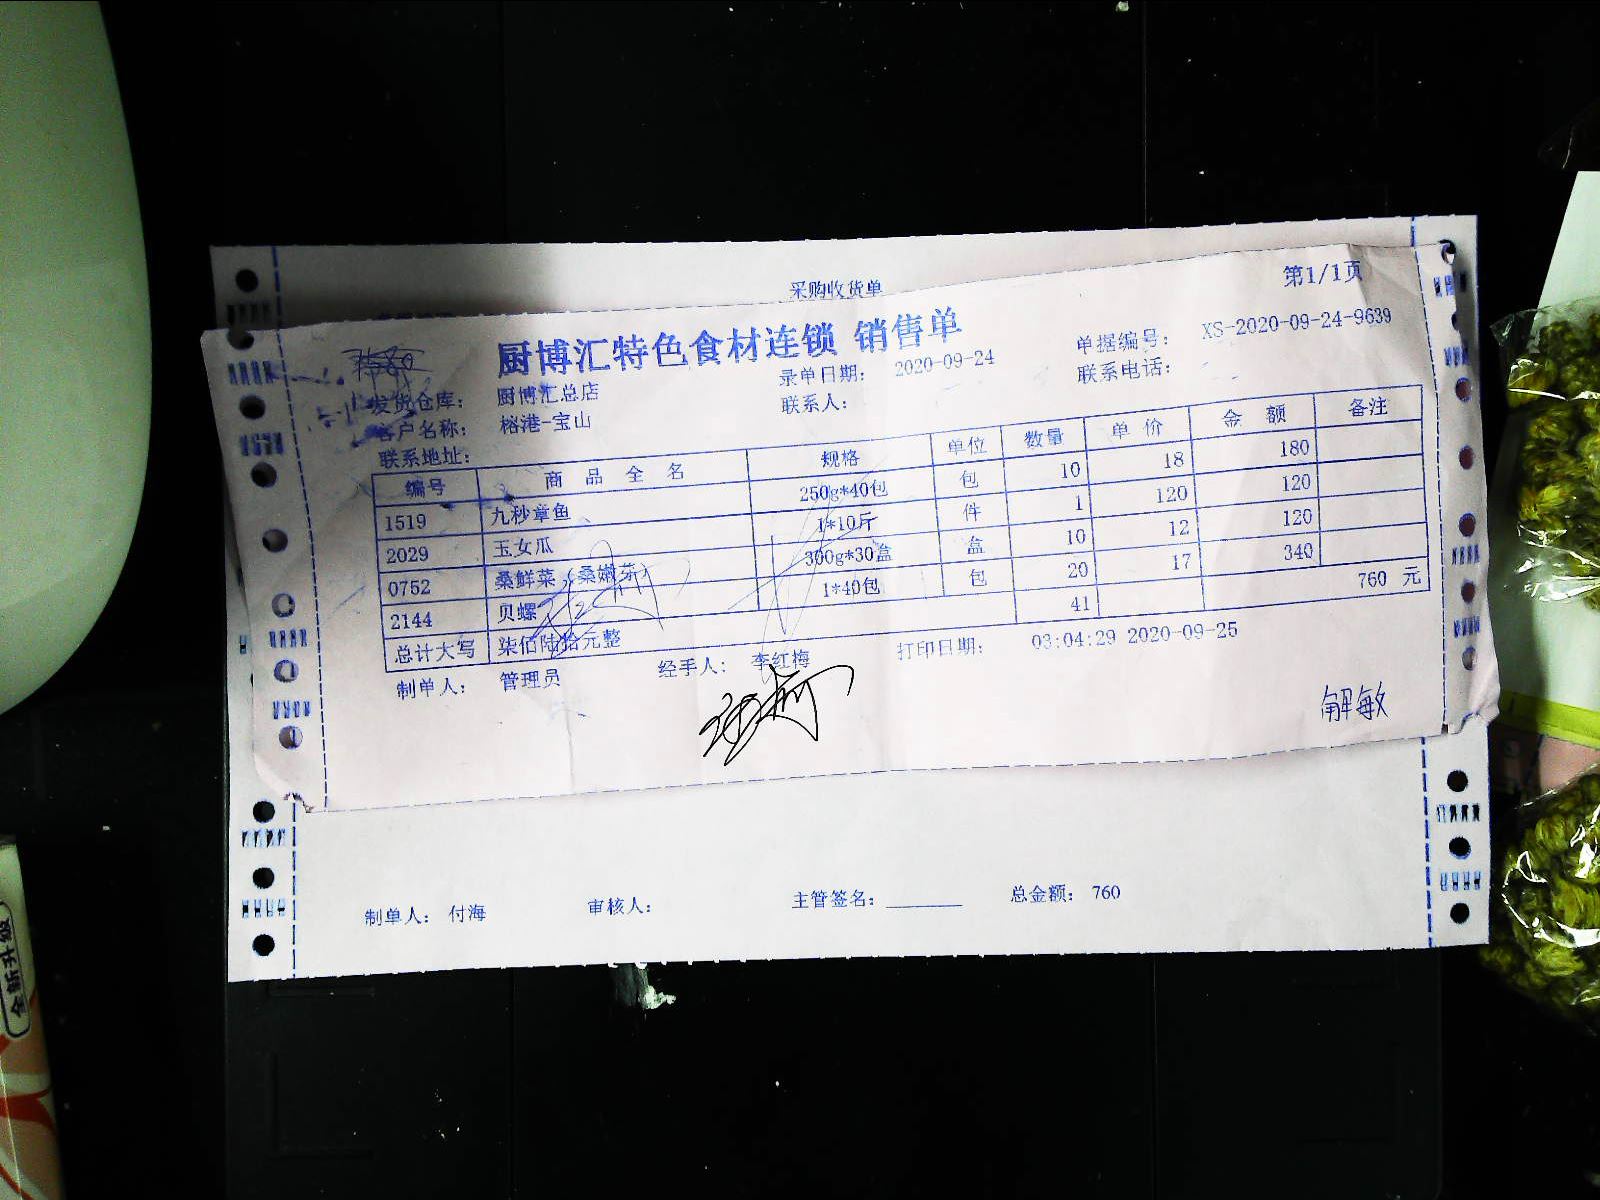 采购收货单
第1/1页
厨博汇特色食材连锁 销售单
发货仓库: 厨博汇总店 录单日期: 2020-09-24 单据编号: XS-2020-09-24-9639
客户名称: 榕港-宝山 联系人: 联系电话:
联系地址:
编号 商品全名 规格 单位 数量 单价 金额 备注
1519 九秒章鱼 250g*40包 包 10 18 180
2029 玉女瓜 1*10斤 件 1 120 120
0752 桑鲜菜(桑嫩芽) 300g*30盒 盒 10 12 120
2144 贝螺 1*40包 包 20 17 340
总计大写 柒佰陆拾元整 41 760 元
制单人: 管理员 经手人: 李红梅 打印日期: 03:04:29 2020-09-25
解敏
制单人: 付海 审核人: 主管签名: 总金额: 760
全新升级